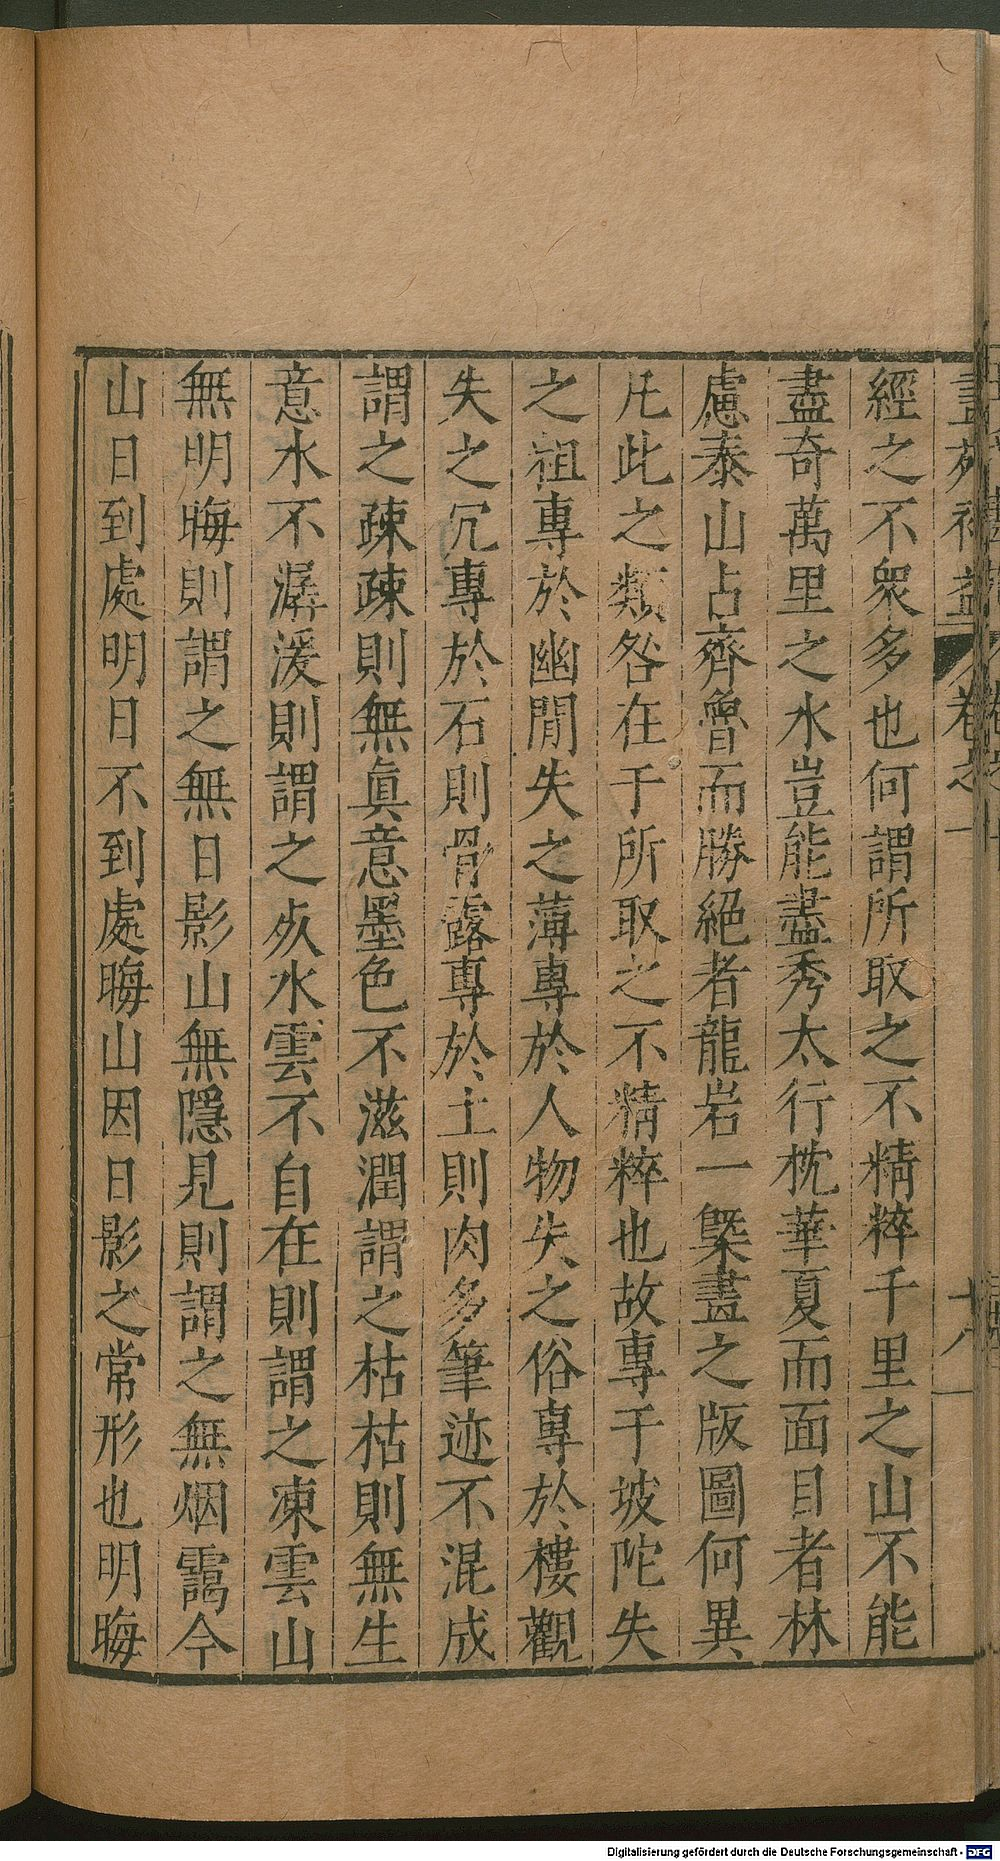 畫苑補益 卷之一 十八
經之不衆多也何謂所取之不精粹千里之山不能
盡奇萬里之水豈能盡秀太行枕華夏而面目者林
慮泰山占齊魯而勝絕者龍岩一槩畫之版圖何異
凡此之類咎在于所取之不精粹也故專于坡陀失
之祖專於幽閒失之薄專於人物失之俗專於樓觀
失之冗專於石則骨露專於土則肉多筆迹不混成
謂之疎疎則無眞意墨色不滋潤謂之枯枯則無生
意水不潺湲則謂之死水雲不自在則謂之凍雲山
無明晦則謂之無日影山無隱見則謂之無烟靄今
山日到處明日不到處晦山因日影之常形也明晦
Digitalisierung gefördert durch die Deutsche Forschungsgemeinschaft - DFG